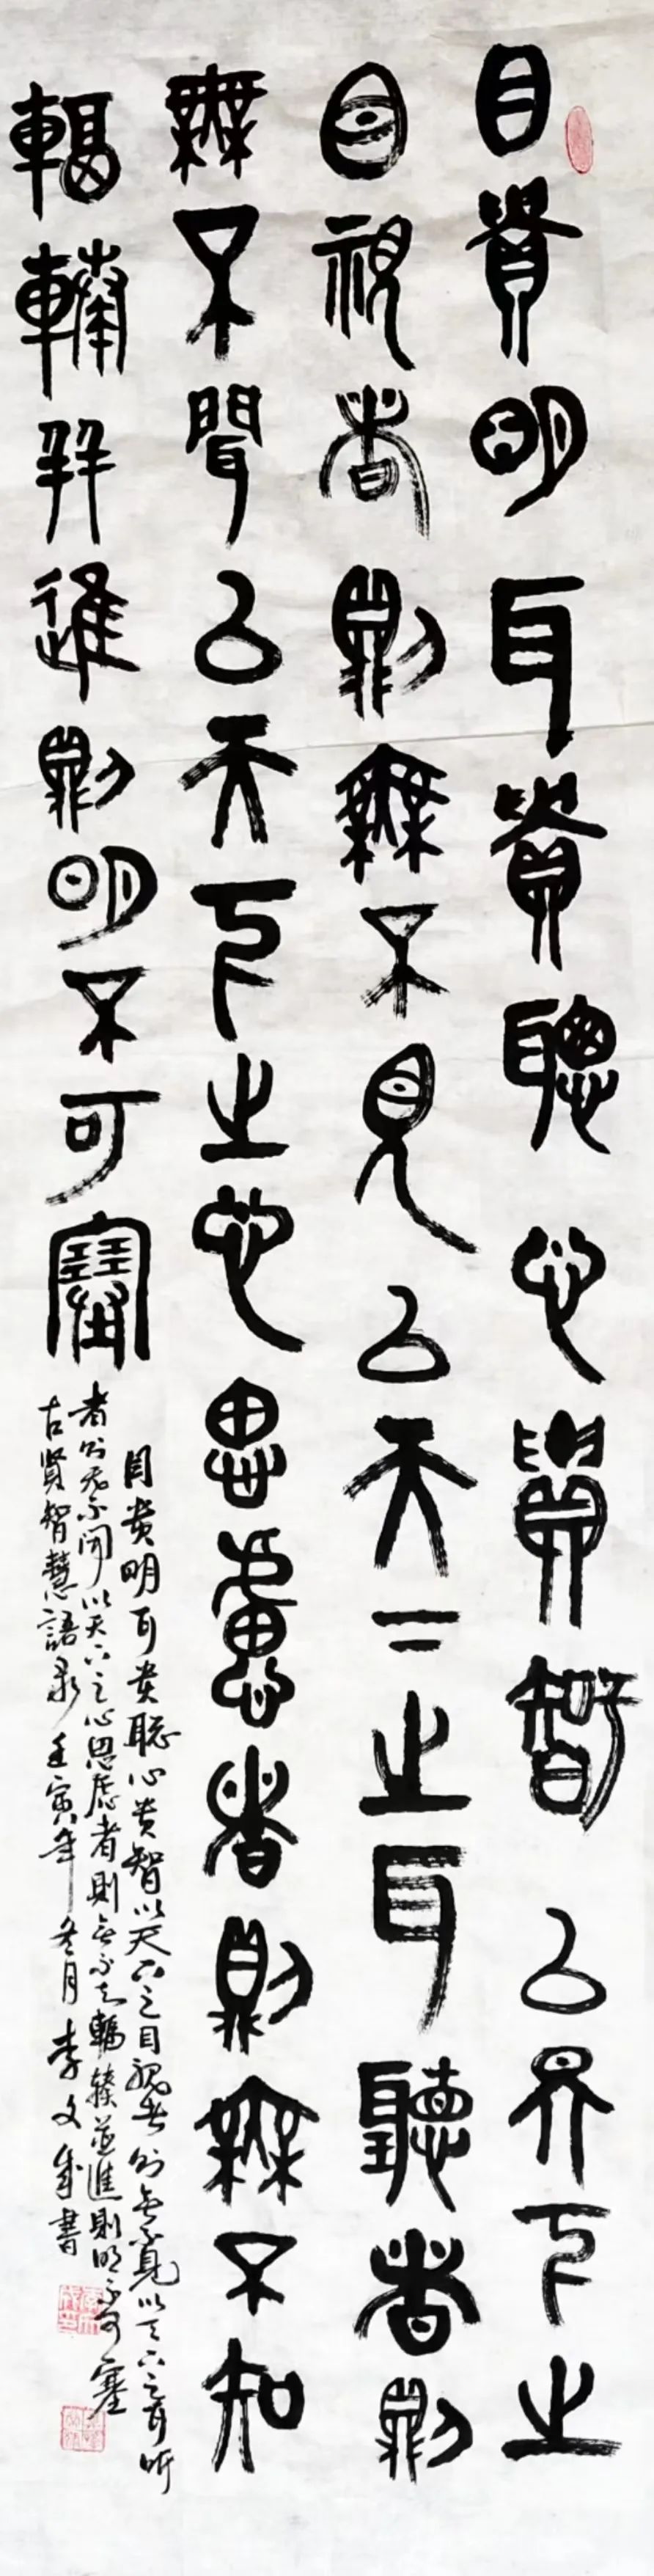 目貴明耳貴聰心貴智以天下之
目視者則無不見以天下之耳聽者則
無不聞以天下之心思慮者則無不知
輻輳并進則明不可塞
目贵明耳贵聪心贵智以天下之目視者则無不見以天下之耳听
者则无不闻以天下之心思慮者則無不知輻輳並進則明不可塞
古賢智慧語录壬寅年冬月李文成書